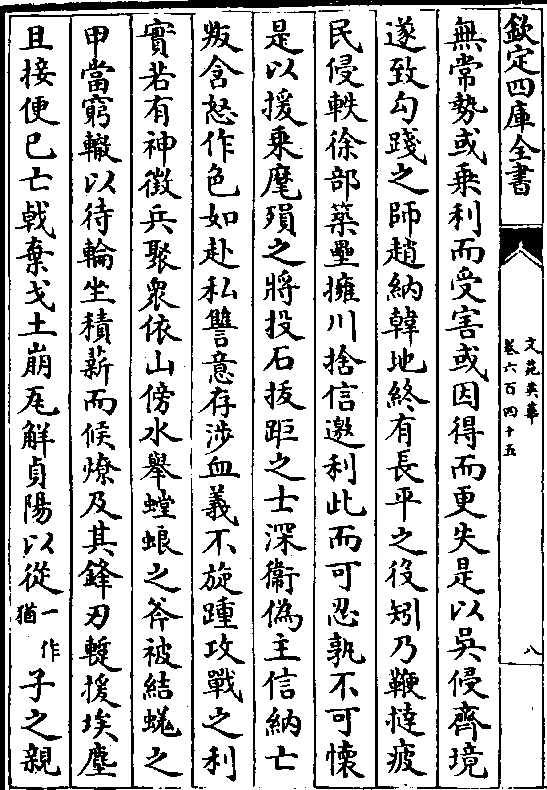 欽定四庫全書
文苑英華
卷六百四十五
八
無常勢或乗利而受害或因得而更失是以吳侵齊境
遂致勾踐之師趙納韓地終有長平之役矧乃鞭撻疲
民侵軼徐部築壘擁川捨信邀利此而可忍孰不可懷
是以援乘麾殞之將投石拔距之士深銜偽主信納亡
叛含怒作色如赴私讐意存涉血義不旋踵攻戰之利
實若有神徵兵聚衆依山傍水舉螳蜋之斧被結蜣之
甲當窮轍以待輪坐積薪而候燎及其鋒刃轂援埃塵
且接便已亡戟棄戈土崩瓦解貞陽以從一作猶子之親